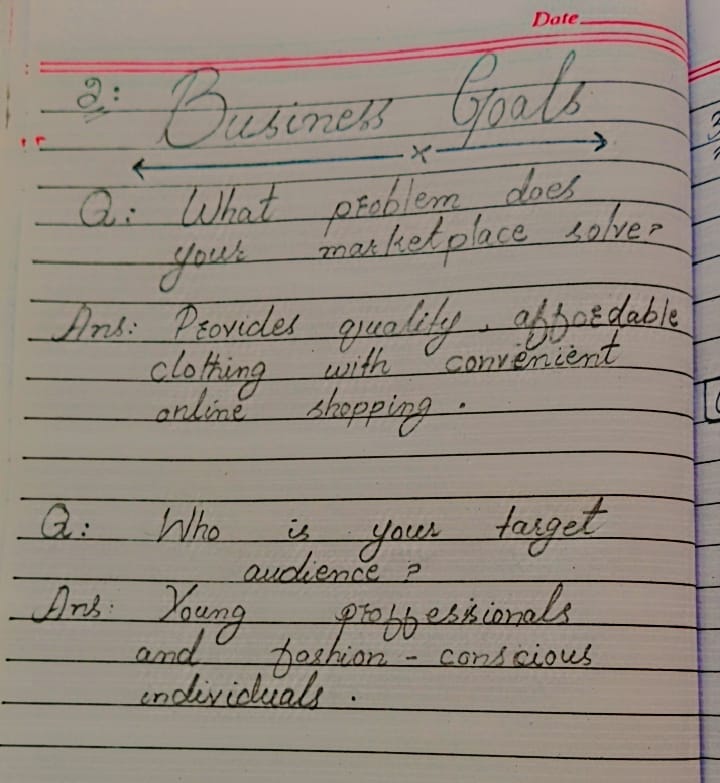 Date
2:
Business Goals
Q: What problem does
your marketplace solve?
Ans: Provides quality, affordable
clothing with convenient
online shopping.
Q: Who is your target
audience?
Ans: Young proffessionals
and fashion - conscious
individuals.